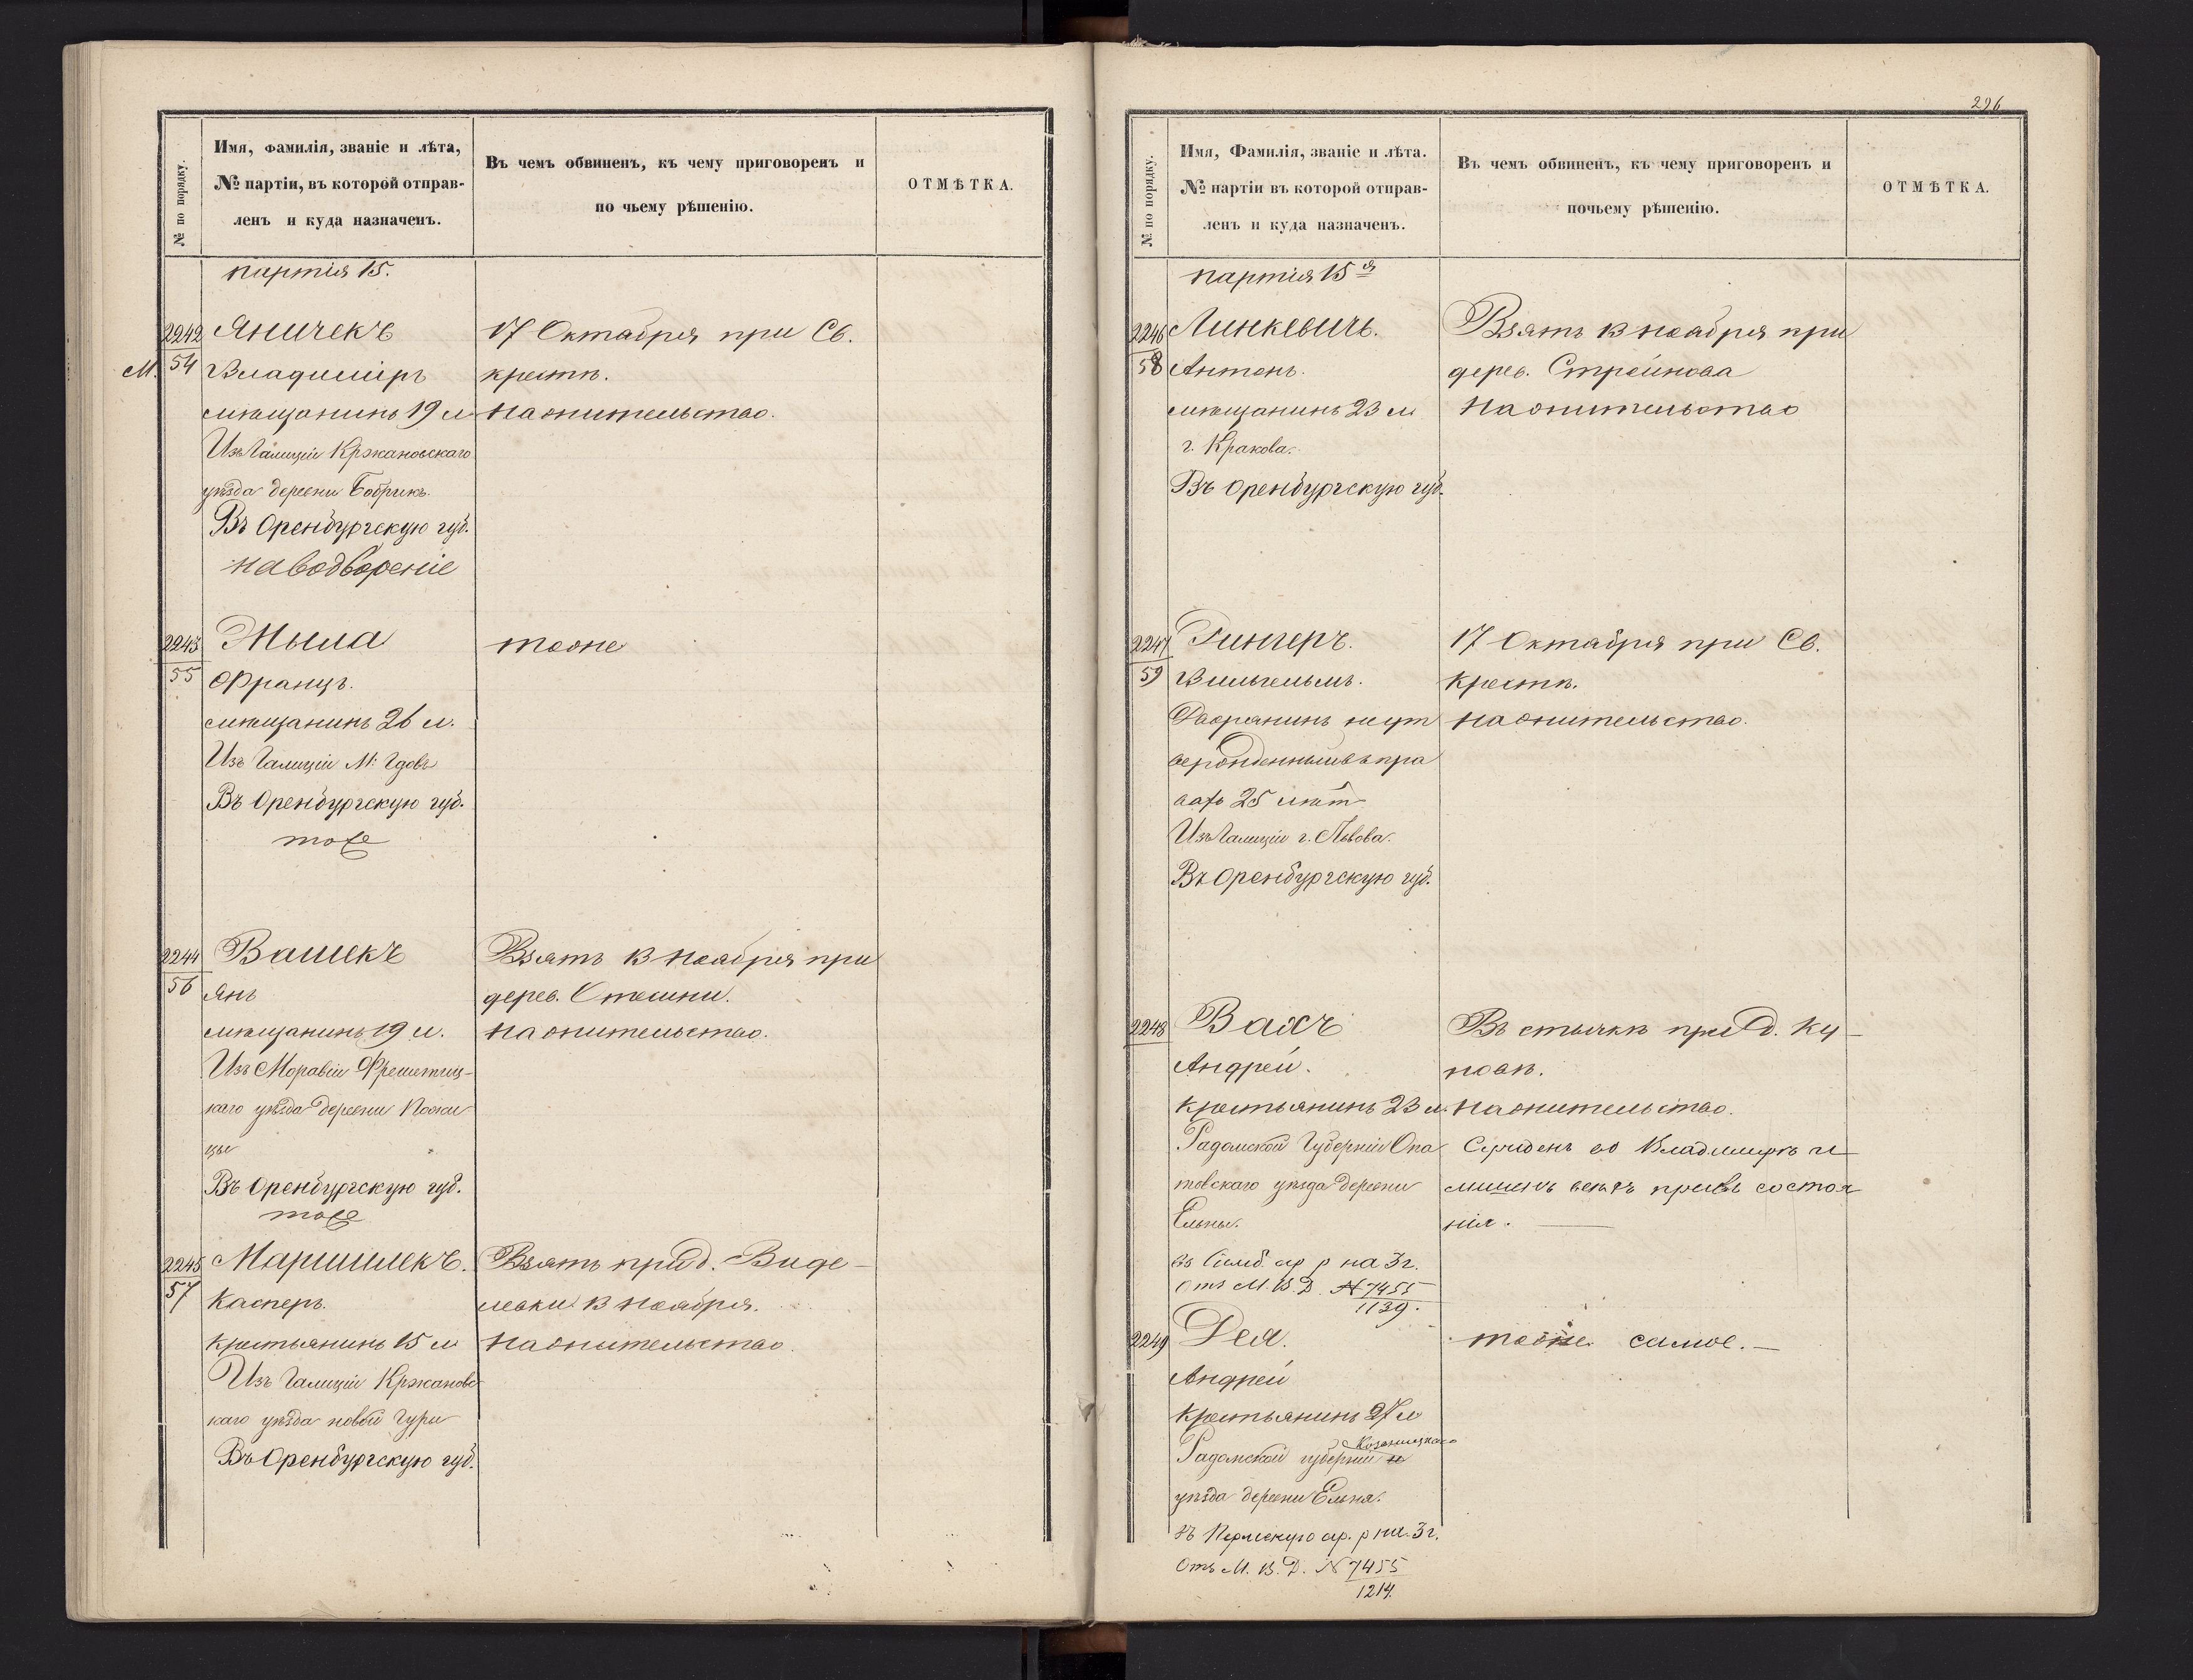 № по порядку.
Имя, фамилія, званіе и лѣта,
№ партіи, въ которой отправ-
ленъ и куда назначенъ.
Въ чемъ обвиненъ, къ чему приговоренъ и
по чьему рѣшенію.
ОТМѢТКА.
партія 15.
2242
Яничекъ
17 Октября при Св.
М. 54
Владиміръ
крестѣ.
мѣщанинъ 19 л
На жительство.
Изъ Галиціи Кржановскаго
уѣзда деревни Бобрикъ.
Въ Оренбургскую губ.
на водвореніе
2243
Жыла
тоже
55
Францъ.
мѣщанинъ 26 л.
Изъ Галиціи М. Гдовъ
Въ Оренбургскую губ.
тоже
2244
Вашекъ
Взятъ 13 Ноября при
56
Янъ
дерев. Стешни.
мѣщанинъ 19 л.
На жительство.
Изъ Моравіи Фрештиц-
каго уѣзда деревни
цы
Въ Оренбургскую губ.
тоже
2245
Маршилекъ.
Взятъ при д. Виде-
57
Касперъ.
левки 13 Ноября.
Крестьянинъ 15 л
На жительство.
Изъ Галиціи Кржановс
каго уѣзда новой Гури
Въ Оренбургскую губ.
296
№ по порядку.
Имя, Фамилія, званіе и лѣта.
№ партіи въ которой отправ-
ленъ и куда назначенъ.
Въ чемъ обвиненъ, къ чему приговоренъ и
почьему рѣшенію.
ОТМѢТКА.
партія 15я
2246
Линкевичъ.
Взятъ 13 Ноября при
58
Антонъ.
дерев. Стрейнова
мѣщанинъ 23 л
На жительство
г. Кракова.
Въ Оренбургскую губ.
2247
Гингеръ.
17 Октября при Св.
59
Вильгельмъ.
Крестѣ.
Дворянинъ неут
На жительство.
вержденный въ пра
вахъ 25 лѣтъ
Изъ Галиціи г. Львова.
Въ Оренбургскую губ.
2248
Вахъ
Въ стычкѣ при д. Ку-
Андрей.
новѣ.
Крестьянинъ 23 л.
На жительство.
Радомской Губерніи Опа
Сужденъ во Владимірѣ и
товскаго уѣзда деревни
лишенъ всѣхъ правъ состоя
Ельны.
нія.
въ Симб. ар р на 3 г.
Отъ М. В. Д. № 7455
1139.
2249
Дея.
тоже самое.
Андрей
Крестьянинъ 27 л
Козеницкаго
Радомской губерніи
уѣзда деревни Ельня.
въ Пермскую ар. р на 3 г.
Отъ М. В. Д. № 7455
1214.